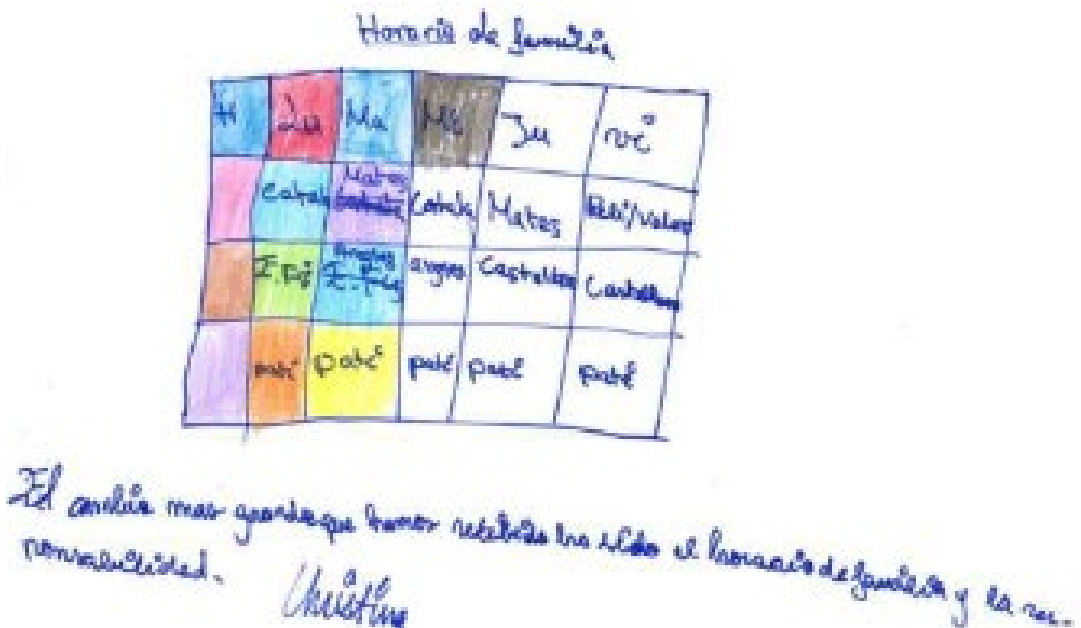 Horario de familia
H Lu Ma Mi Ju vi
Catala Mates Catala Mates Reli/Valors
E.Fis Angles angles Castellano Castellano
E.Fis
pati pati pati pati pati
El cambio mas grande que hemos recibido ha sido el horario de familia y la res-
ponsabilidad.
Christine